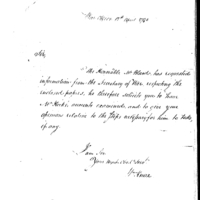 War Office 11th April 1792
Sir,
The Honorable Mr Steele, has requested
information from the Secretary of War respecting the
inclosed papers, he therefore solicits you to have
Mr remarks and to give your
opinion relative to the steps necessary for him to take,
if any.
I am Sir
Your Most Obed.t Serv.t